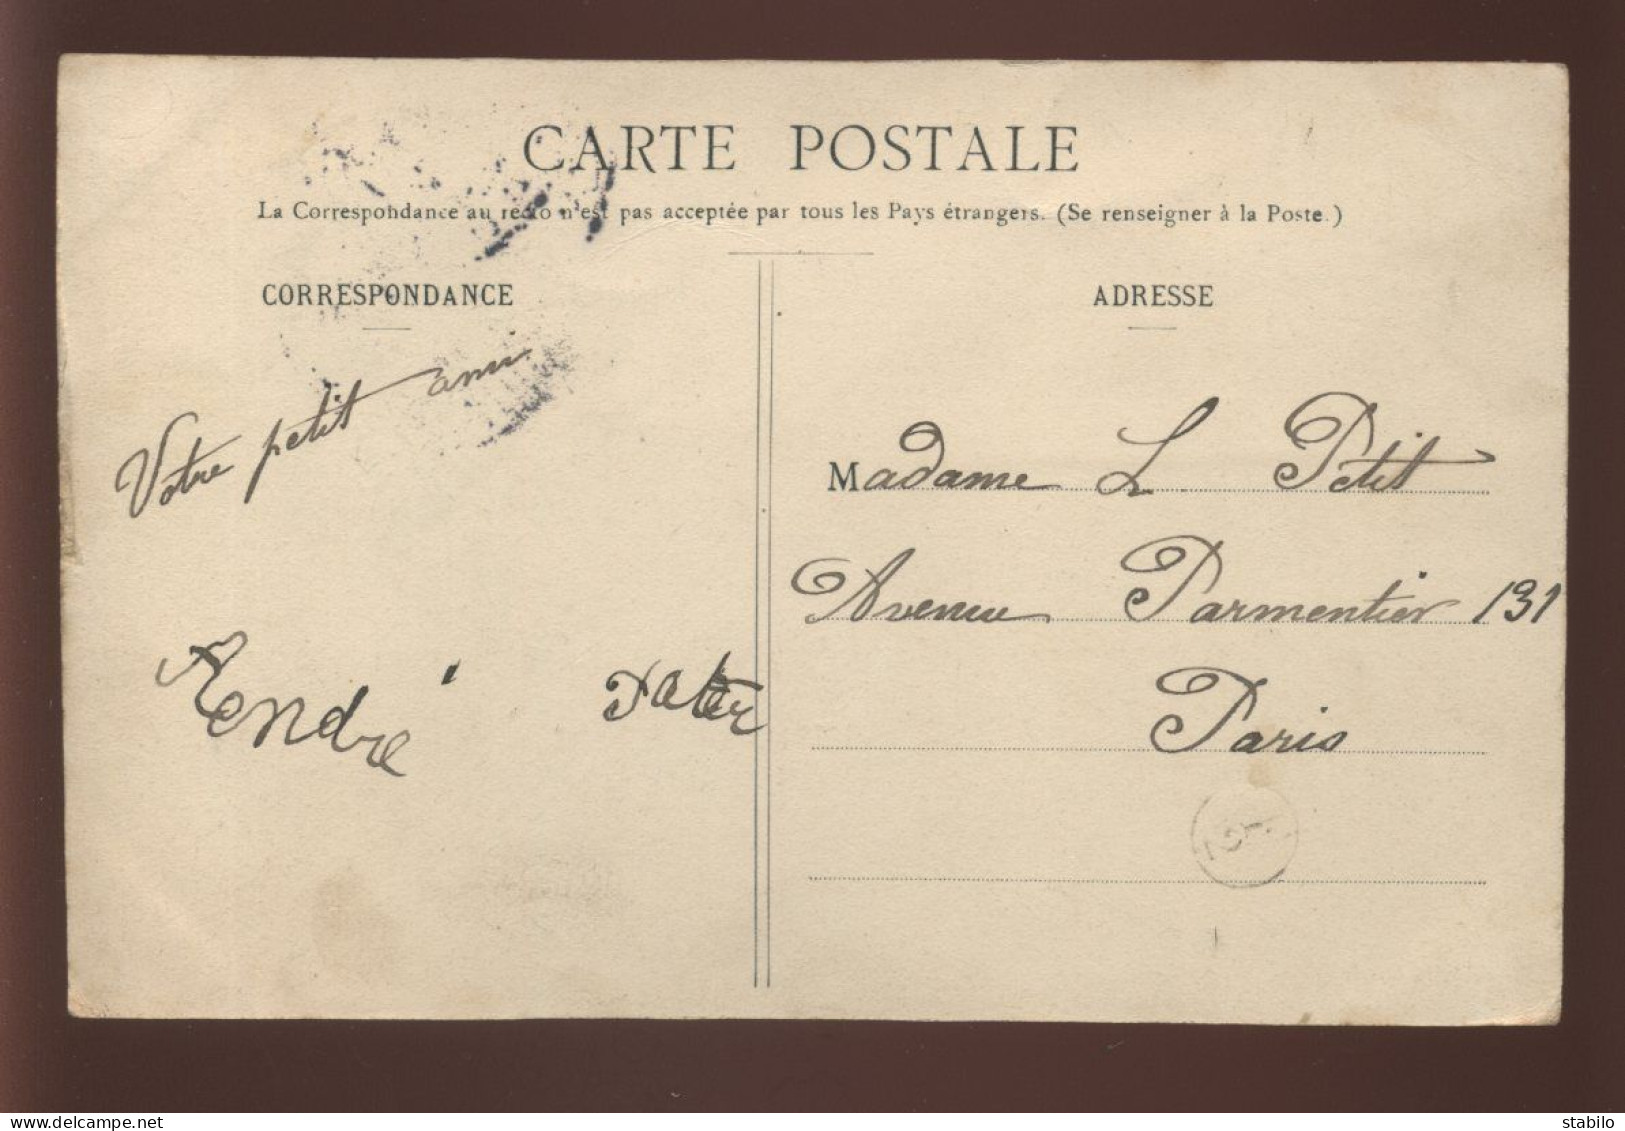 CARTE POSTALE
La Correspondance au recto n'est pas acceptée par tous les Pays étrangers. (Se renseigner à la Poste.)
CORRESPONDANCE
Votre petit ami
ADRESSE
Madame L. Petit
Avenue Parmentier 131
Paris
stabilo